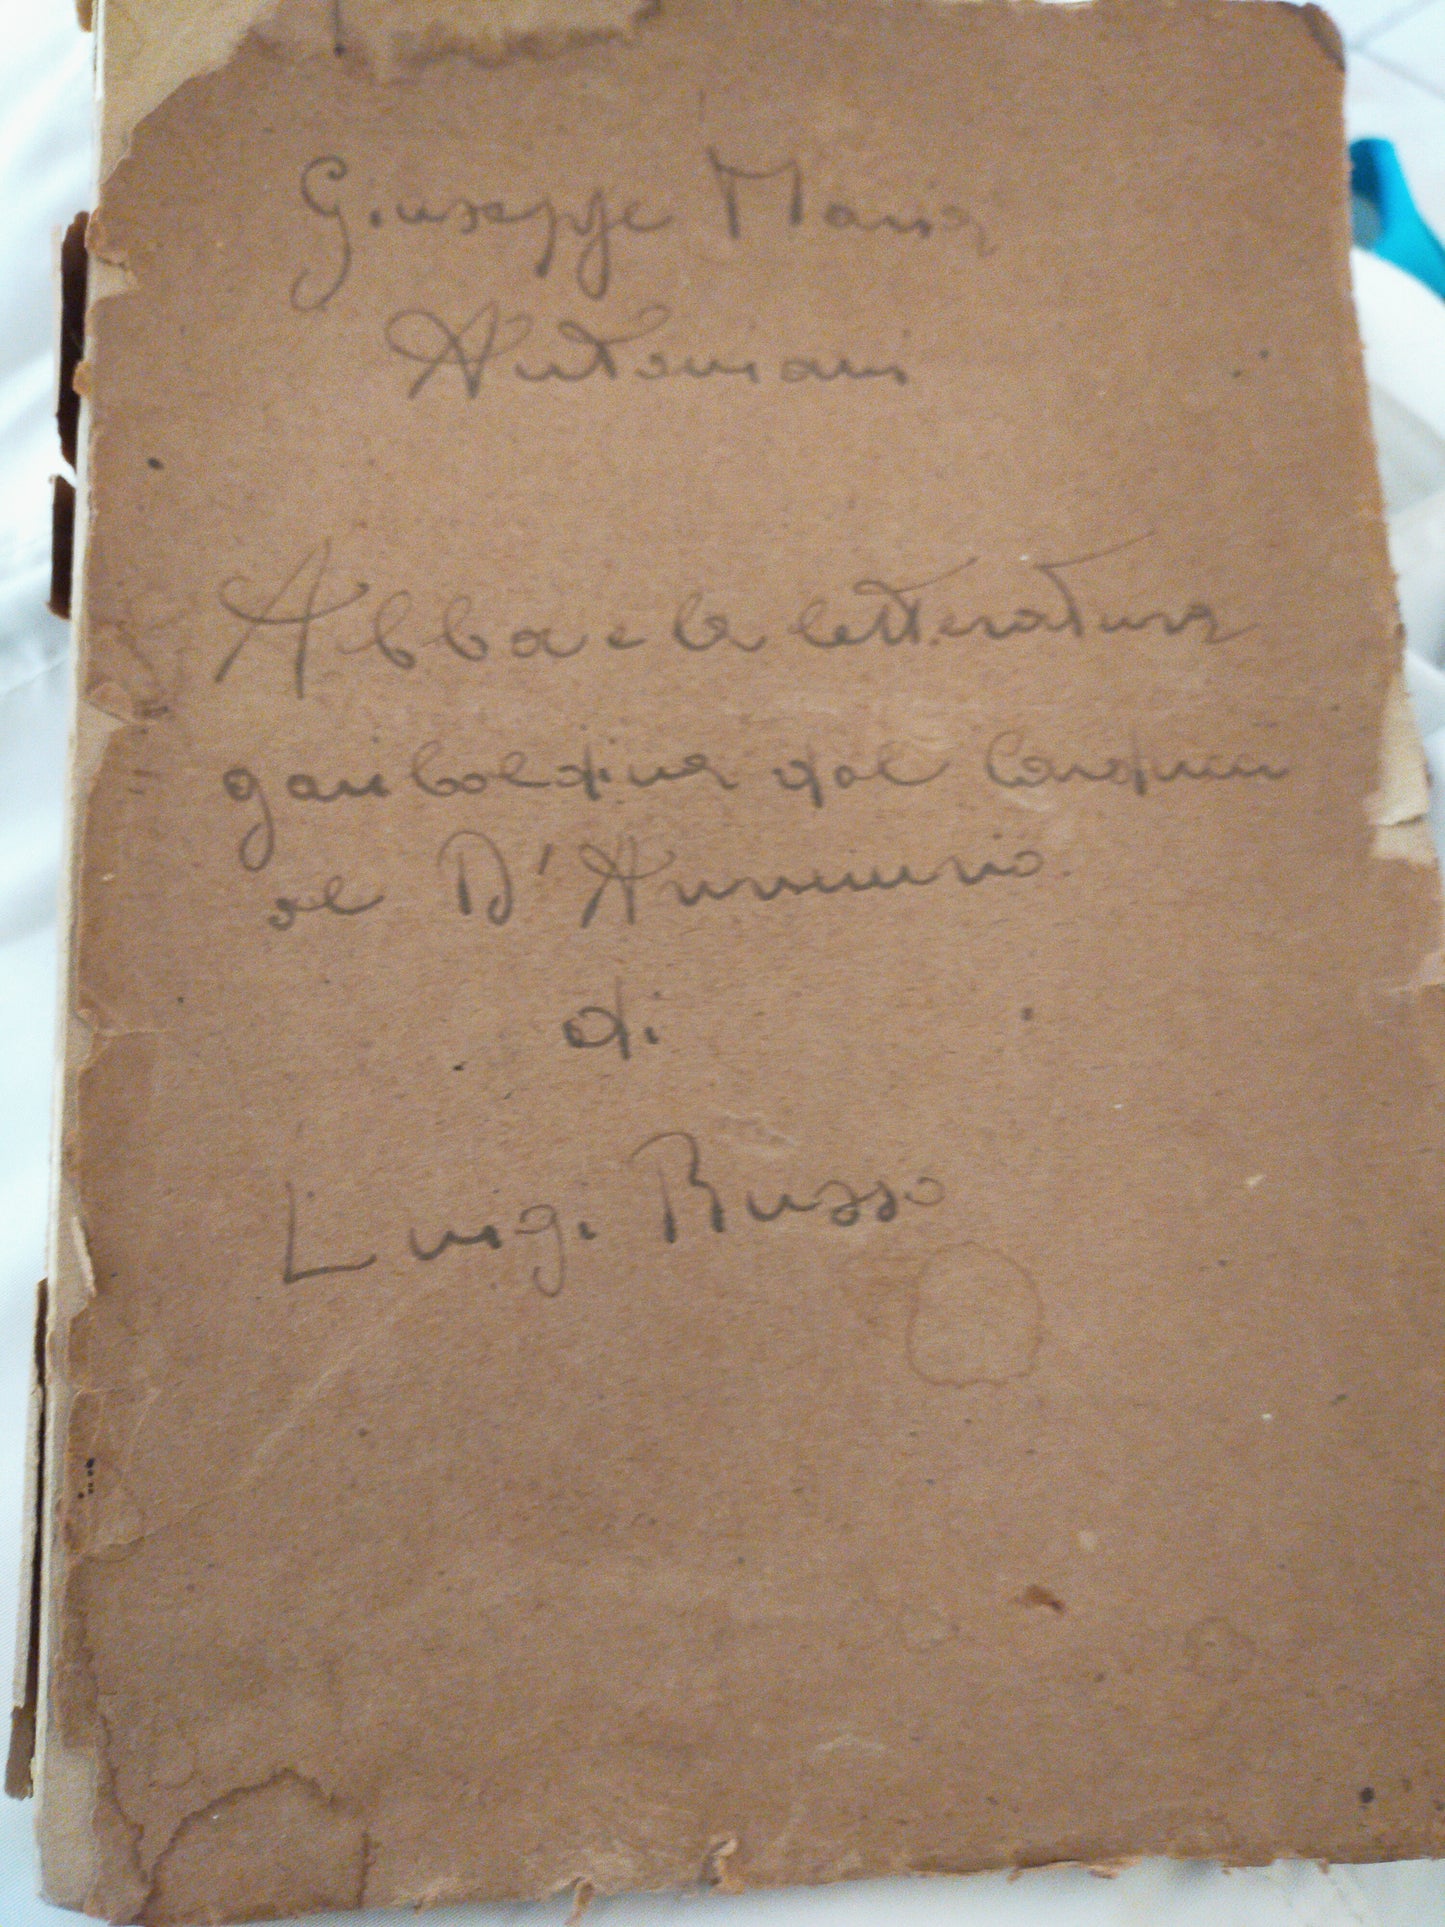 Giuseppe Maria
Antoniani
Abba e la letteratura
garibaldina dal Carducci
al D'Annunzio.
di
Luigi Russo